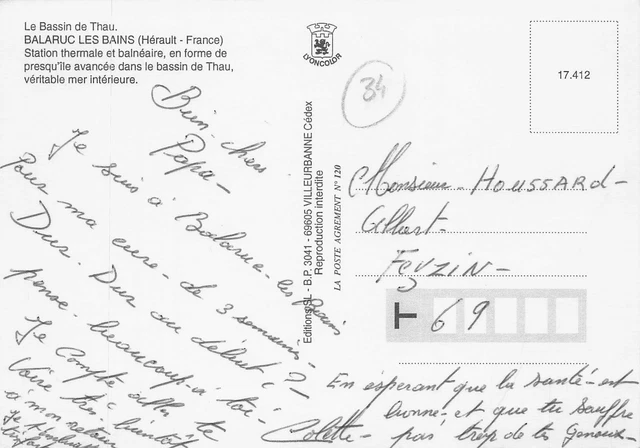 Le Bassin de Thau.
BALARUC LES BAINS (Hérault - France)
Station thermale et balnéaire, en forme de
presqu'île avancée dans le bassin de Thau,
véritable mer intérieure.
LYONCOLOR
34
17.412
Editions SL - B.P. 3041 - 69605 VILLEURBANNE Cédex
Reproduction interdite
LA POSTE AGREMENT N° 120
Bien - chers
Papa -
Je suis à Balaruc - les Bains
Pour ma cure - de 3 semaines -
Dur. Dur au début !
pense - beaucoup - à toi -
Je Compte aller te
Voire très bientôt
à mon retour
Je
Monsieur - HOUSSARD -
Albert -
FEYZIN -
T 69
En espérant que la santé - est
bonne - et que tu souffre
Colette - pas trop de tes Genoux -